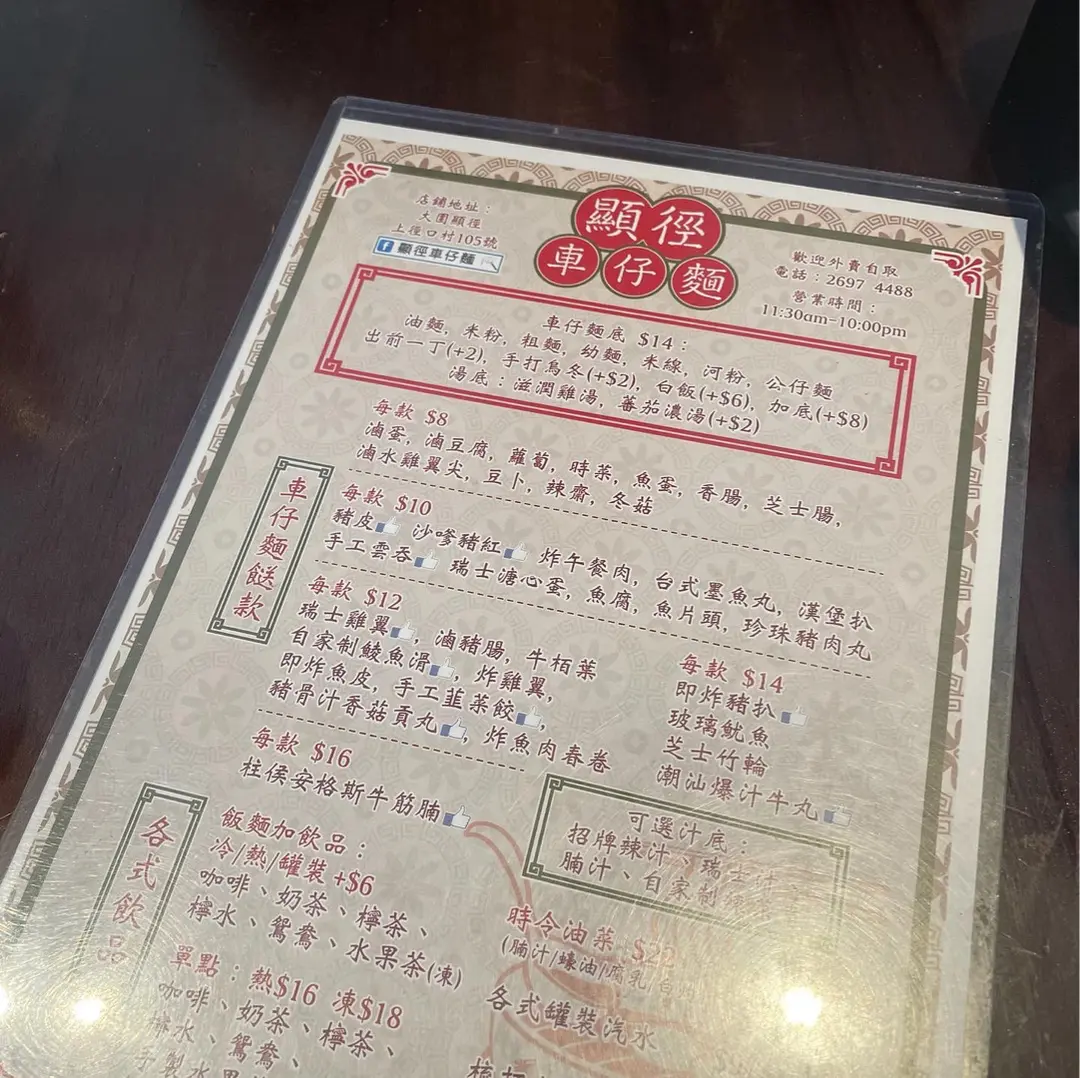 店鋪地址：
大圍顯徑
上徑口村105號
f 顯徑車仔麵
顯徑
車仔麵
歡迎外賣自取
電話：2697 4488
營業時間：
11:30am-10:00pm
車仔麵底 $14：
油麵, 米粉, 粗麵, 幼麵, 米線, 河粉, 公仔麵
出前一丁(+2), 手打烏冬(+$2), 白飯(+$6), 加底(+$8)
湯底：滋潤雞湯, 蕃茄濃湯(+$2)
車仔麵餸款
每款 $8
滷蛋, 滷豆腐, 蘿蔔, 時菜, 魚蛋, 香腸, 芝士腸,
滷水雞翼尖, 豆卜, 辣齋, 冬菇
每款 $10
豬皮 沙嗲豬紅 炸午餐肉, 台式墨魚丸, 漢堡扒
手工雲吞 瑞士溏心蛋, 魚腐, 魚片頭, 珍珠豬肉丸
每款 $12
瑞士雞翼, 滷豬腸, 牛栢葉
自家制鯪魚滑, 炸雞翼,
即炸魚皮, 手工韮菜餃,
豬骨汁香菇貢丸, 炸魚肉春卷
每款 $14
即炸豬扒
玻璃魷魚
芝士竹輪
潮汕爆汁牛丸
每款 $16
柱侯安格斯牛筋腩
可選汁底：
招牌辣汁、瑞士汁
腩汁、自家制
各式飲品
飯麵加飲品：
冷/熱/罐裝 +$6
咖啡、奶茶、檸茶、
檸水、鴛鴦、水果茶(凍)
單點：熱$16 凍$18
咖啡、奶茶、檸茶、
檸水、鴛鴦、
手製水果
時令油菜 $22
(腩汁/蠔油/腐乳/白灼
各式罐裝汽水